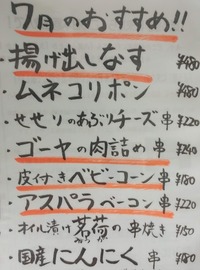 7月のおすすめ!!
・揚げ出しなす ¥480
・ムネコリポン ¥480
・せせりのあぶりチーズ串 ¥220
・ゴーヤの肉詰め串 ¥240
・皮付きベビーコーン串 ¥180
・アスパラベーコン串 ¥220
・オイル漬け茗荷の串焼き ¥150
・国産にんにく串 ¥180